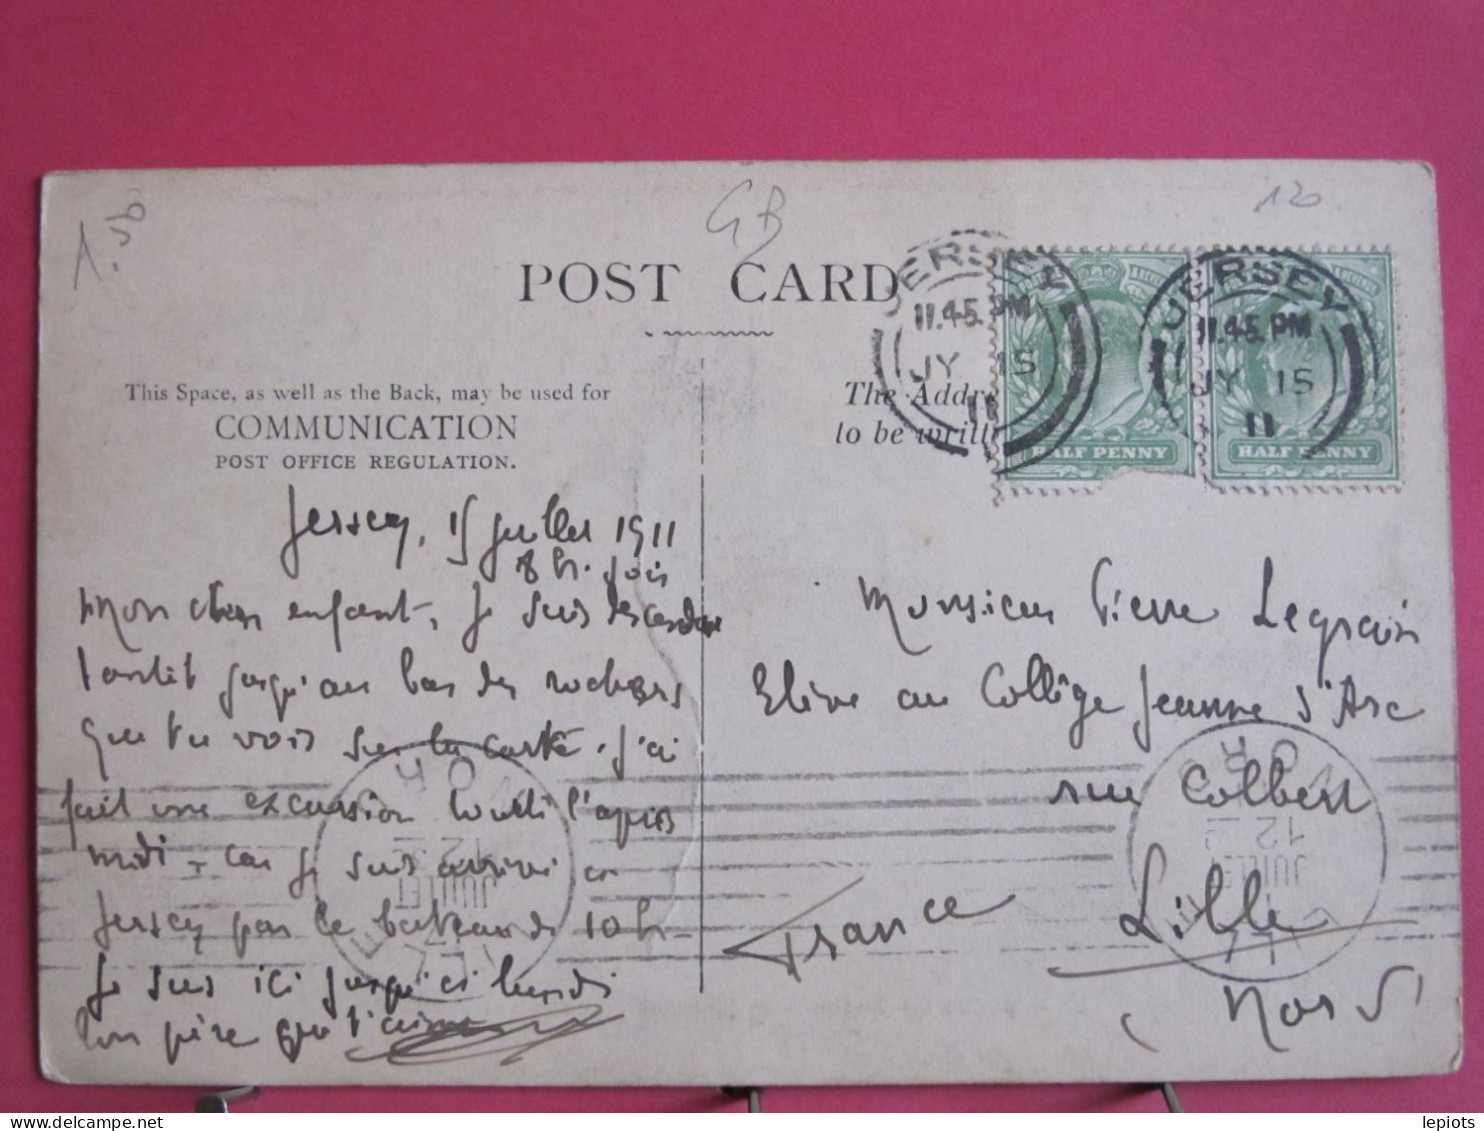 A. vb
GB
120
POST CARD
JERSEY
11.45.PM
JY 15
11
JERSEY
11.45.PM
JY 15
11
HALF PENNY
HALF PENNY
This Space, as well as the Back, may be used for
COMMUNICATION
POST OFFICE REGULATION.
The Addre
to be writt
Jersey, 15 juillet 1911
8 h. soir
Mon cher enfant, je suis descendu
tantôt jusqu'au bas des rochers
que tu vois sur la carte. j'ai
fait une excursion toute l'après
midi, car je suis arrivé à
Jersey par le bateau de 10 h -
Je suis ici jusqu'à lundi
Ton père qui t'aime
Monsieur Pierre Legrain
Elève au Collège Jeanne d'Arc
rue Colbert
Lille
France
Nord
12
JUILLET
12
JUILLET
lepiots